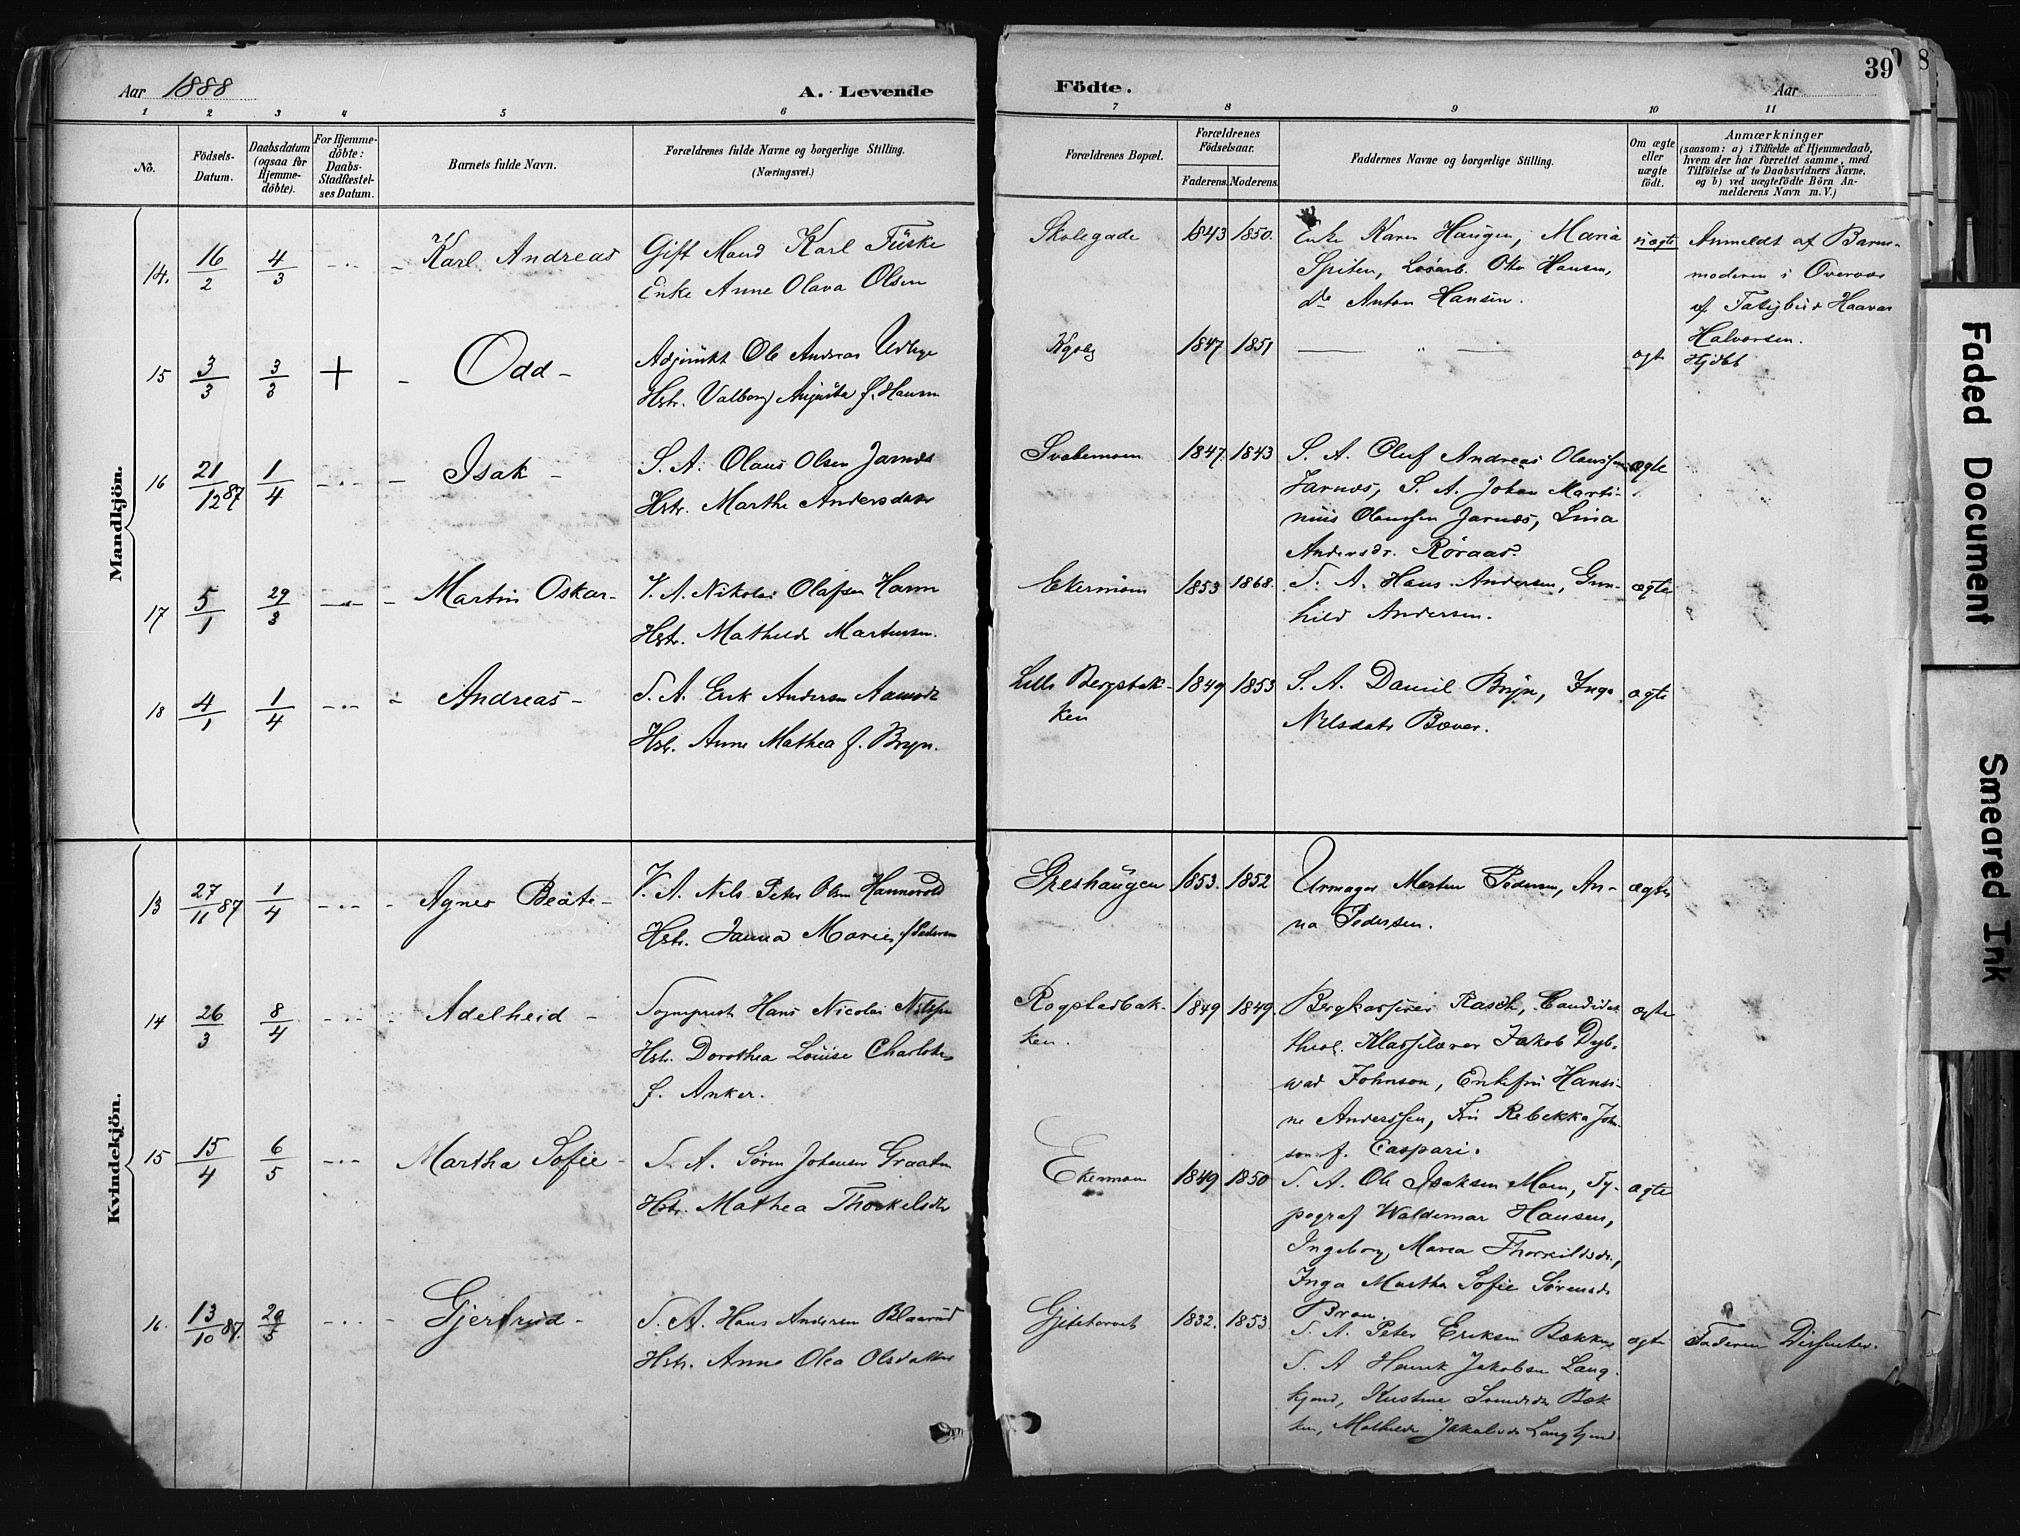 Aar 1888
A. Levende
Födte.
Aar
39
1 2 3 4 5 6 7 8 9 10 11
No.
Födsels-Datum.
Daabsdatum (ogsaa för Hjemme-döbte).
For Hjemme-döbte: Daabs-Stadfæstel-ses Datum.
Barnets fulde Navn.
Forældrenes fulde Navne og borgerlige Stilling.
(Næringsvei.)
Forældrenes Bopæl.
Forældrenes Födselsaar.
Faderens. Moderens.
Faddernes Navne og borgerlige Stilling.
Om ægte eller uægte födt.
Anmærkninger
(saasom: a) i Tilfælde af Hjemmedaab,
hvem der har forrettet samme, med
Tilföielse af to Daabsvidners Navne,
og b) ved uægtefödte Börn An-
melderens Navn m. V.)
Mandkjön.
14. 16/2 4/3 Karl Andreas
Gift Mand Karl Füske
Enke Anne Olava Olsen
Skolegade 1843 1850.
Enke Karen Haugen, Maria
Spiten, Løsarb. Otto Hansen,
do Anton Hansen.
uægte
Anmeldt af Barne-
moderen i Overvær
af Halvorsen.
15 3/3 3/3 + Odd
Adjunkt Ole Andreas
Hstr. Valborg Augusta f. Hansen
1847 1851
ægt
Hjdbt
16 21/12 87 1/4 Isak
S. A. Olaus Olsen Jarnæs
Hstr. Marthe Andersdatr
1847 1843
S. A. Oluf Andreas Olaussen
Jarnæs, S. A. Johan Marti-
nius Olaussen Jarnæs, Lina
Andersdr. Røraas.
ægte
17 5/1 29/3 Martin Oskar
V. A. Nikolai Olafsen
Hstr. Mathilde Martinsen.
Ekermoen 1853 1868.
S. A. Hans Andersen, Gun-
hild Andersen.
ægte
18 4/1 1/4 Andreas
S. A. Erik Andersen Aamodt
Hstr. Anne Mathea f. Bryn.
Lille Bergsbak-
ken 1849 1853
S. A. Daniel Bryn, Inga
Nilsdatr Bæver.
ægte
Kvindekjön.
13 27/11 87 1/4 Agnes Beate
V. A. Nils Peter Olsen Hannevold
Hstr. Janna Marie f Pedersen
Greshaugen 1853. 1852
Urmager Morten Pedersen, An-
na Pedersen.
ægte
14 26/3 8/4 Adelheid
Sogneprest Hans Nicolai Nilsen
Hstr. Dorothea Louise Charlotte
f. Anker.
Rogstadbak-
ken. 1849 1849.
Bergkasserer Rasch, Candidat
theol. Klasselærer Jakob Dyb-
wad Johnson, Enkefru Hansi-
ne Anderssen, Fru Rebekka John-
son f. Caspari.
ægte
15 15/4 6/5 Martha Sofie
S. A. Søren Johansen Graaten
Hstr. Mathea Thorkelsdr
Ekermoen 1849 1850
S. A. Ole Isaksen Moen, Ty-
pograf Waldemar Hansen,
Ingeborg Maria Thorkildsdr.,
Inga Martha Sofie Sørensdr
Braa.
ægte
16. 13/10 87. 20/5 Gjertrud
S. A. Hans Andersen Blaarud
Hstr. Anne Olea Olsdatter
1832. 1853.
S. A. Peter Eriksen Bække
S. A Henrik Jakobsen Lang-
kjend, Kristine Svendsdr Bæk-
ken, Mathilde Jakobsdr Langkjend.
ægte
Faderen Dissenter.
Faded Document
Smeared Ink